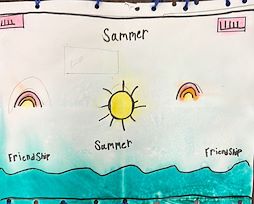 Sammer
Sammer
FriendShip
FriendShip